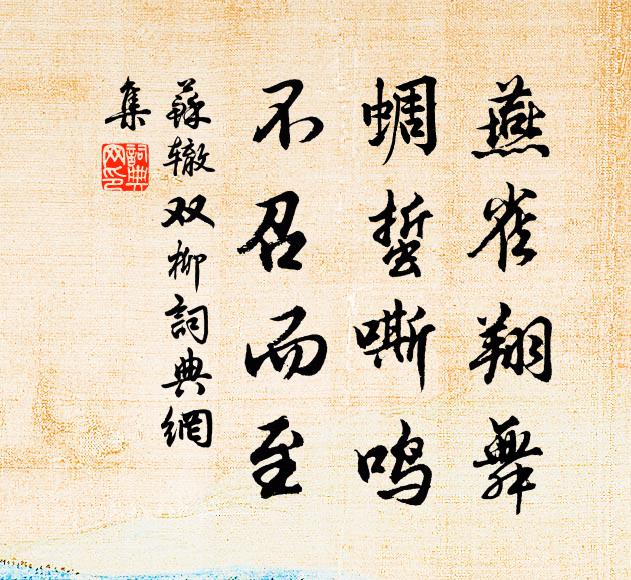 燕雀翔舞
蜩蜇嘶鸣
不召而至
蘇辙双柳詞典網
集
詞典
网印